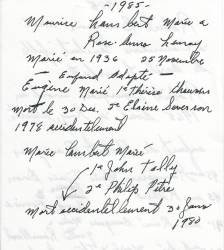 - 1985 -
Maurice Lambert Marié a
Rose Anna
Marié en 1936 25 Novembre
- Enfant Adopté -
Eugène Marié 1e Thérèse
Mort le 30 Dec. 2e Elaine Severson
1978 accidentellement
Marie Lambert Marié
1e John Tolly
2e Philip Petre
Mort accidentellement 30 Janv
1980